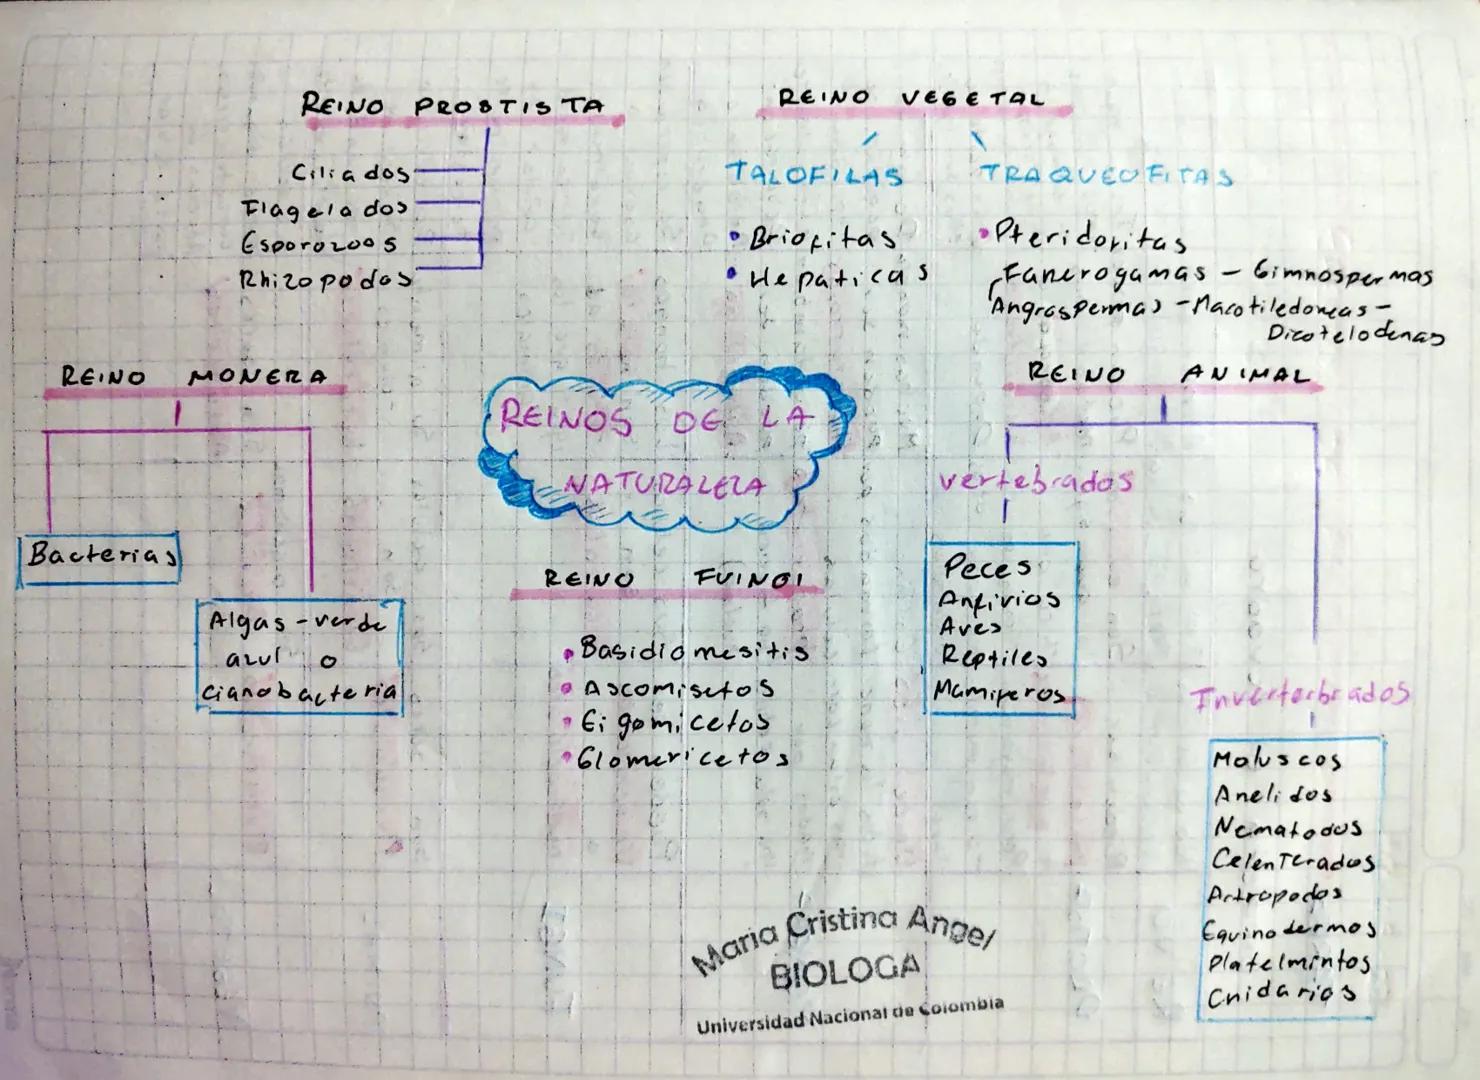 REINO PROSTISTA
Ciliados
Flagelados
Esporozoos
Rhizopodos
REINO VEGETAL
TALOFILAS
• Briofitas
• Hepaticas
TRAQUEOFITAS
• Pteridofitas
Fanerogamas - Gimnospermas
Angrospermas - Macotiledoneas -
Dicotelodenas
REINO MONERA
Bacterias
Algas - verde
azul o
cianobacteria
REINOS DE LA
NATURALEZA
REINO FUINGI
• Basidiomesitis
• Ascomisetos
• Eigomicetos
• Glomericetos
REINO ANIMAL
vertebrados
Peces
Anfivios
Aves
Reptiles
Mamiferos
Inverterbrados
Moluscos
Anelidos
Nematodos
Celenterados
Artropodos
Equinodermos
Platelmintos
Cnidarios
Maria Cristina Angel
BIOLOGA
Universidad Nacional de Colombia